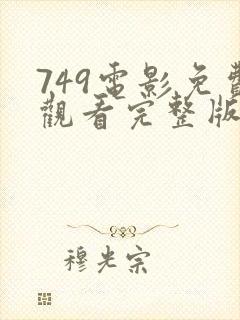 749電影免費
觀看完整版
穆光宗